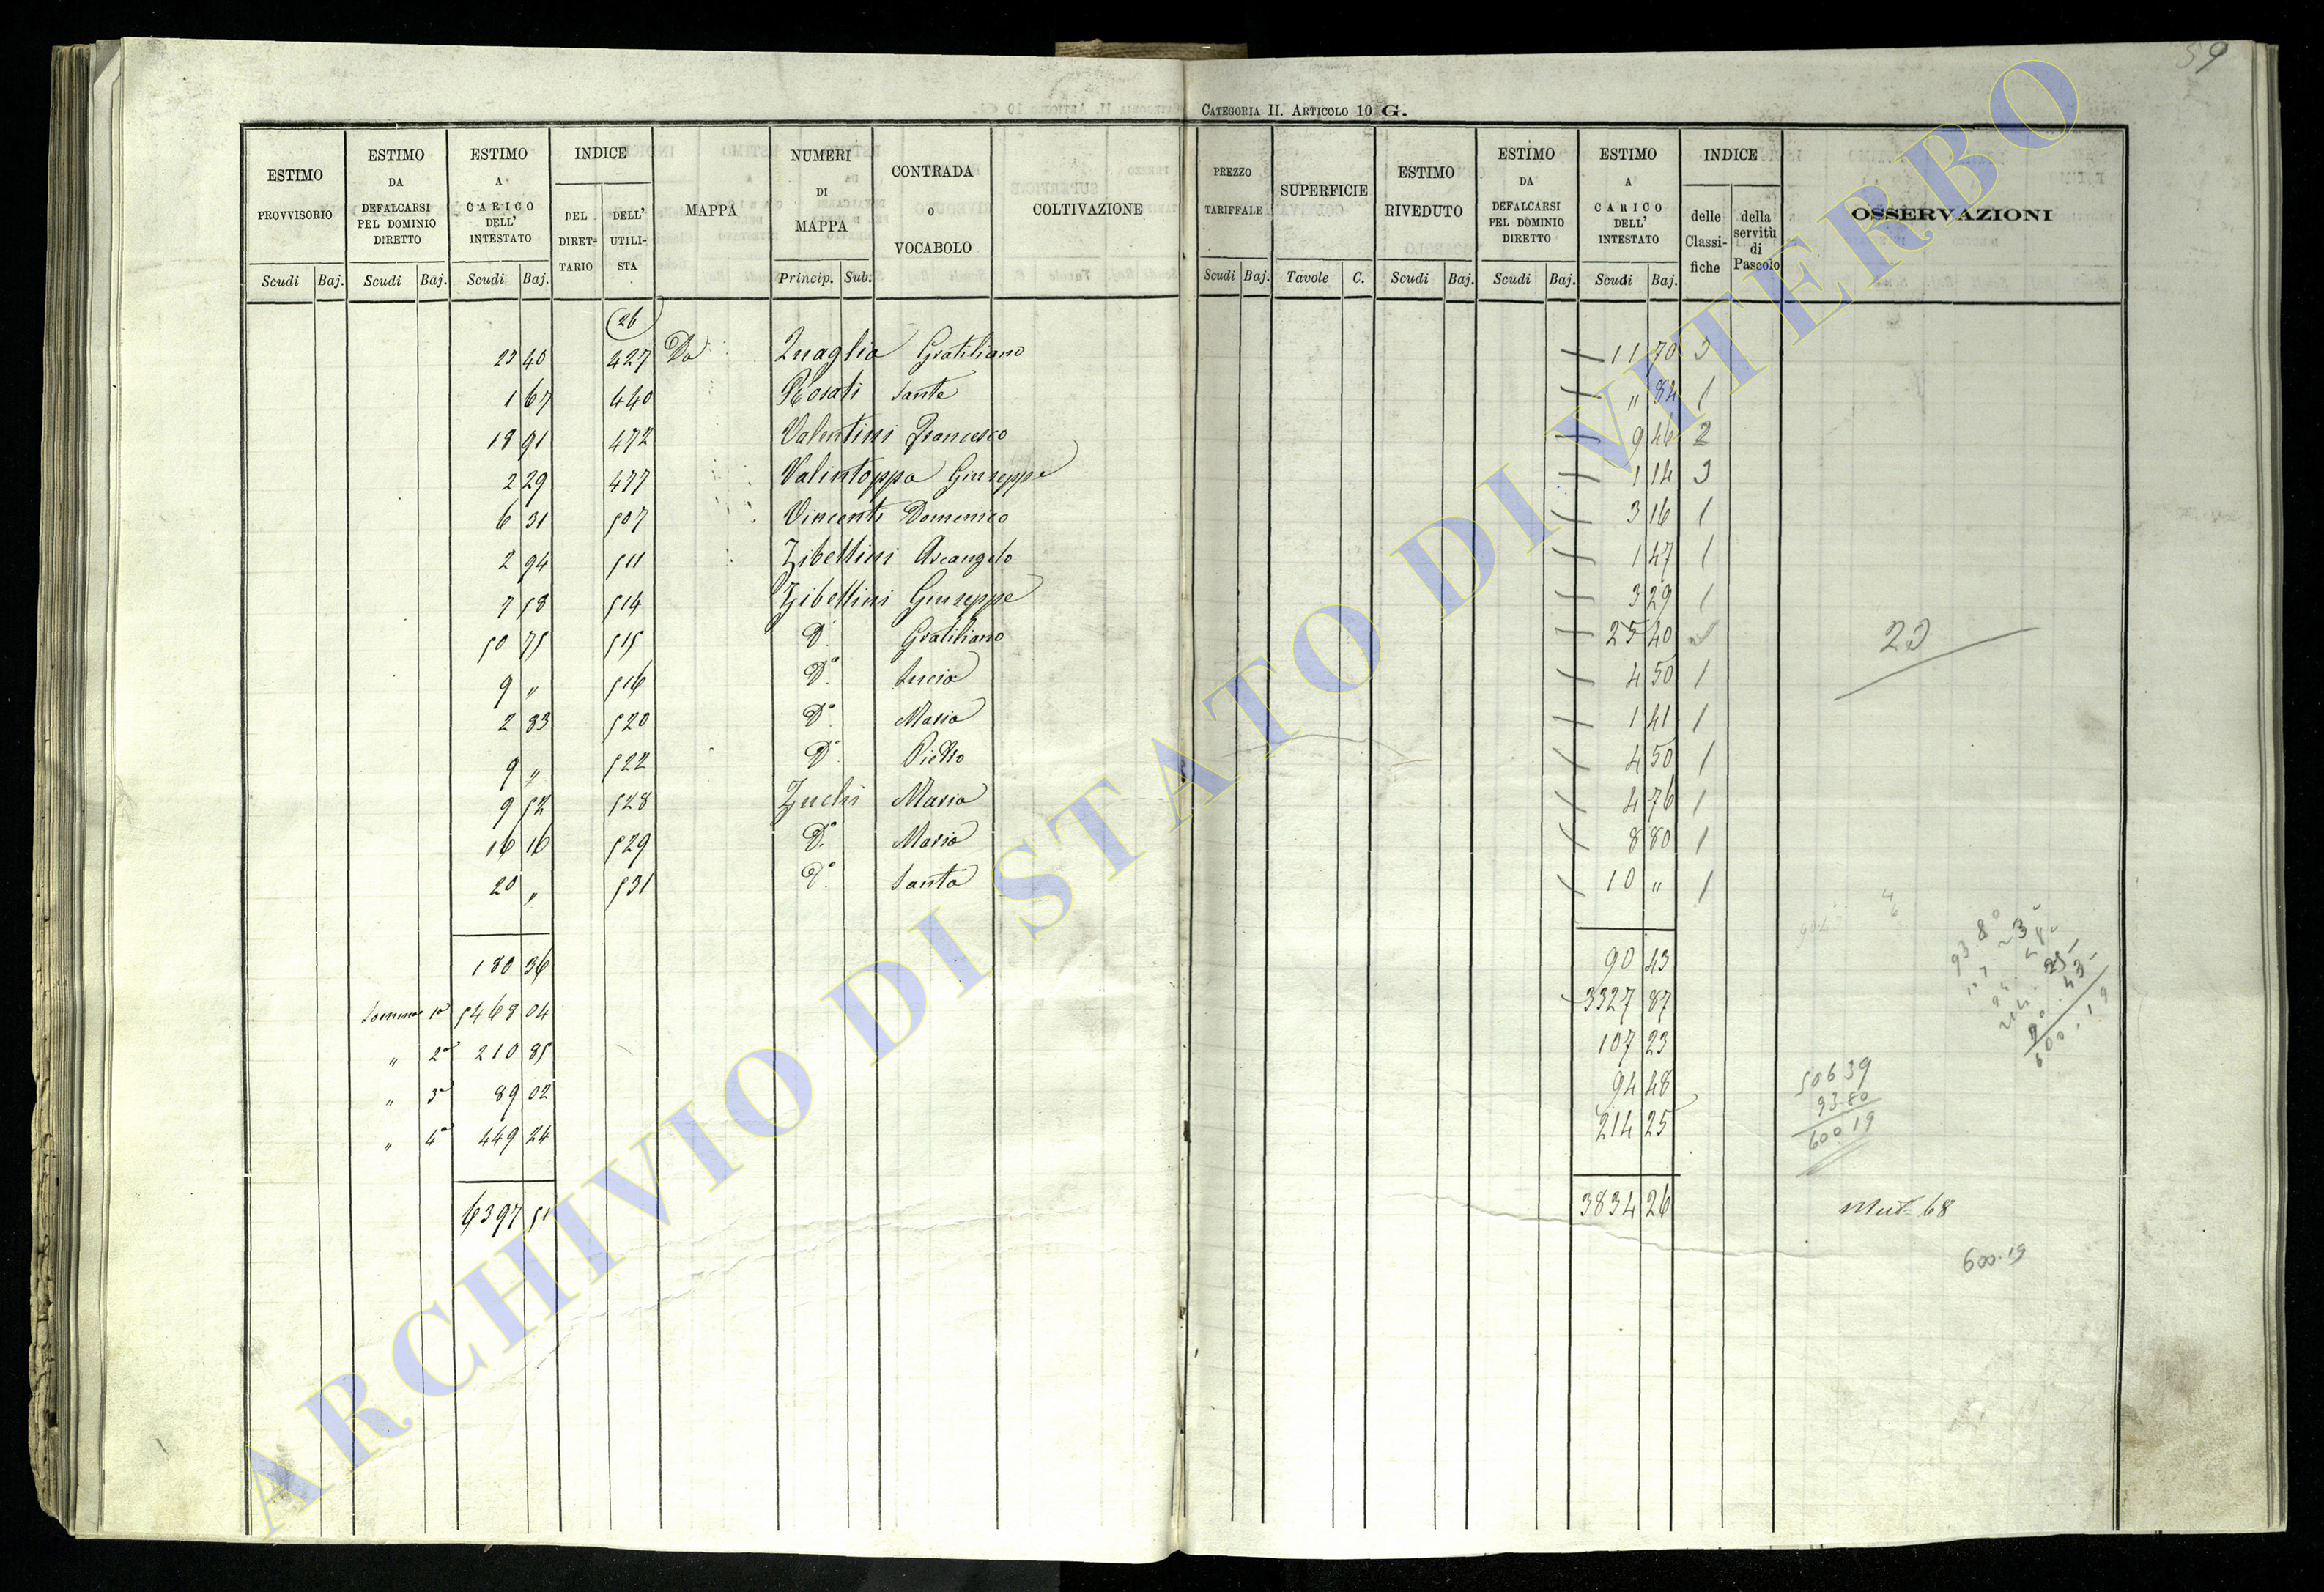 59
CATEGORIA II. ARTICOLO 10 G.
ESTIMO PROVVISORIO
ESTIMO DA DEFALCARSI PEL DOMINIO DIRETTO
ESTIMO A CARICO DELL' INTESTATO
INDICE
DEL DIRETTARIO
DELL' UTILISTA
MAPPA
NUMERI DI MAPPA
CONTRADA O VOCABOLO
COLTIVAZIONE
Scudi Baj. Scudi Baj. Scudi Baj. Princip. Sub.
PREZZO TARIFFALE
SUPERFICIE
ESTIMO RIVEDUTO
ESTIMO DA DEFALCARSI PEL DOMINIO DIRETTO
ESTIMO A CARICO DELL' INTESTATO
INDICE
delle Classifiche
della servitù di Pascolo
OSSERVAZIONI
Scudi Baj. Tavole C. Scudi Baj. Scudi Baj. Scudi Baj.
26
23 40 427 Da Quaglia Gratiliano 11 70 3
1 67 440 Rosati Sante " 84 1
18 91 472 Valentini Francesco 9 46 2
2 29 477 Valintoppa Giuseppe 1 14 3
6 31 507 Vincenti Domenico 3 16 1
2 94 511 Zibellini Arcangelo 1 47 1
7 58 514 Zibellini Giuseppe 3 29 1
50 75 515 D.º Gratiliano 25 40
9 " 516 D.º Lucia 4 50 1
2 83 520 D.º Maria 1 41 1
9 " 522 D.º Pietro 4 50 1
9 52 528 Zuchi Maria 4 76 1
16 16 529 D.º Maria 8 80 1
20 " 531 D.º Santa 10 " 1
23
180 36 90 43
Somma 1ª 5468 04 3327 87
" 2ª 210 85 107 23
" 3ª 89 02 94 48
" 4ª 449 24 214 25
6397 51 3834 26
506 39
93.80
600 19
Mut 68
600.19
ARCHIVIO DI STATO DI VITERBO